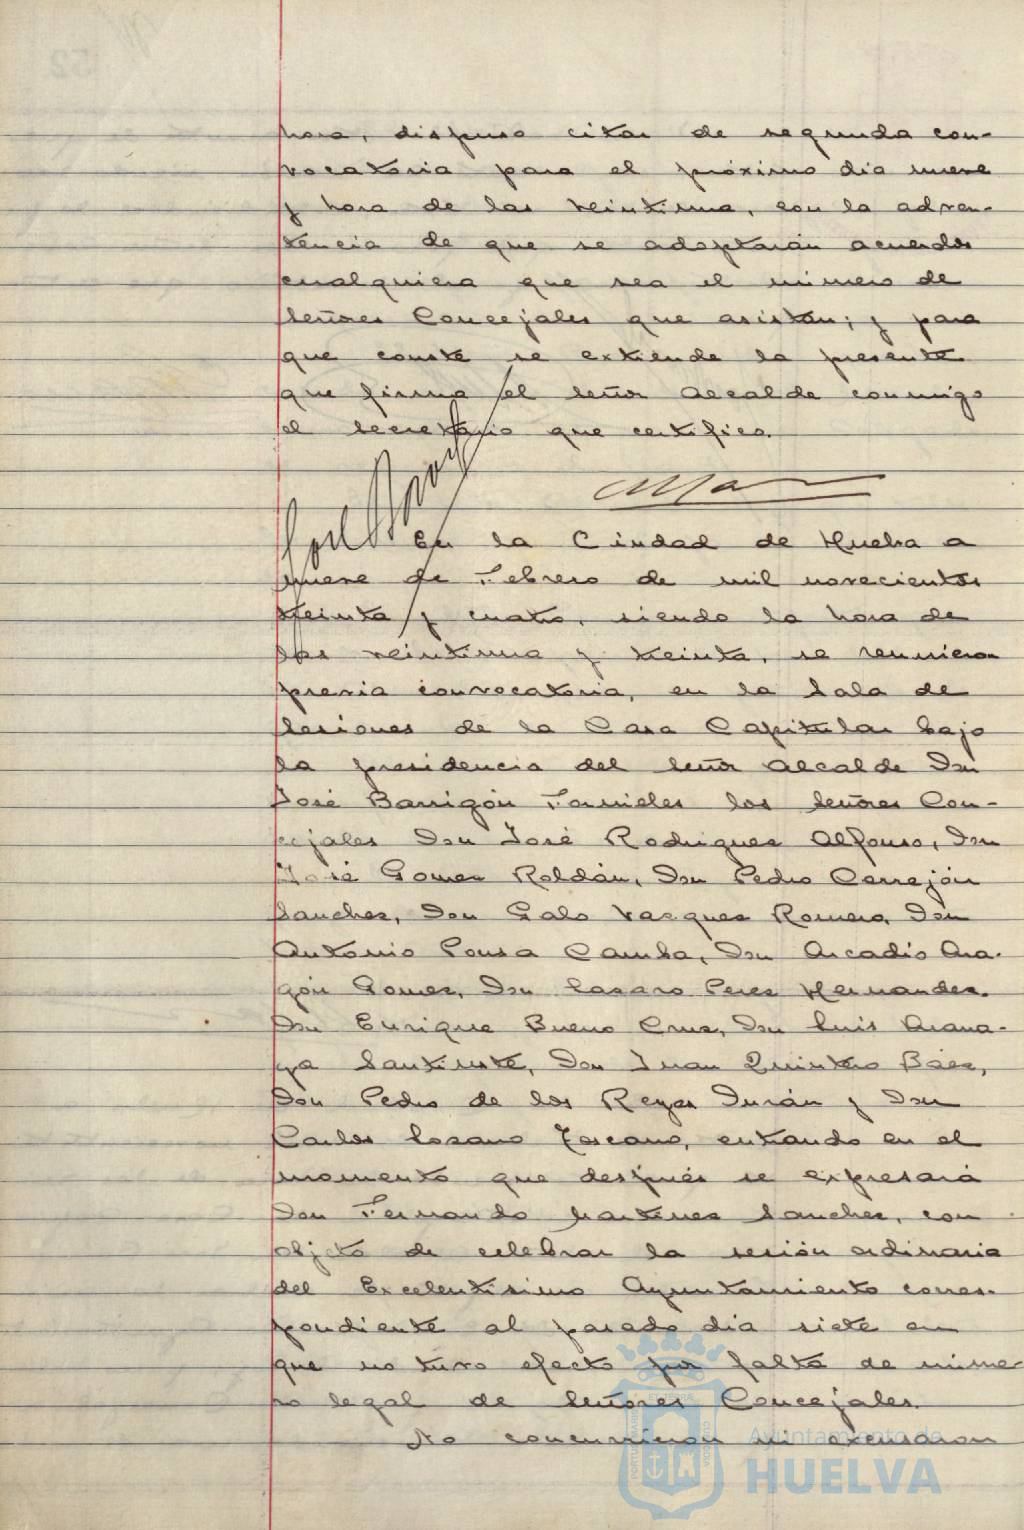 hora, dispuso citar de segunda con-
vocatoria para el próximo dia nueve
y hora de las veintiuna, con la adver-
tencia de que se adoptarán acuerdos
cualquiera que sea el número de
señores Concejales que asistan; y para
que conste se extiende la presente
que firma el señor Alcalde conmigo
el Secretario que certifico.
En la Ciudad de Huelva a
nueve de Febrero de mil novecientos
treinta y cuatro, siendo la hora de
las veintiuna y treinta, se reunieron
previa convocatoria, en la Sala de
Sesiones de la Casa Capitular bajo
la presidencia del señor Alcalde Don
José Barrigón Fornieles los señores Con-
cejales Don José Rodriguez Alfonso, Don
José Gomez Roldán, Don Pedro Cerrejón
Sanchez, Don Galo Vazquez Romero, Don
Antonio Pousa Camba, Don Arcadio Ara-
gón Gomez, Don Lazaro Perez Hernandez,
Don Enrique Bueno Cruz, Don Luis
Don Juan Quintero Báez,
Don Pedro de los Reyes Durán y Don
Carlos Lozano Toscano, entrando en el
momento que después se expresará
Don Fernando Martinez Sanchez, con
objeto de celebrar la sesión ordinaria
del Excelentisimo Ayuntamiento corres-
pondiente al pasado dia siete en
que no tuvo efecto por falta de núme-
ro legal de señores Concejales.
No concurrieron ni excusaron
Ayuntamiento de
HUELVA